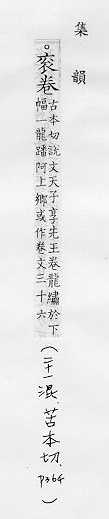 集韻
。袞卷古本切說文天子享先王卷龍繡於下
幅一龍蟠阿上鄉或作卷文三十六
(二十一混.苦本切.
P364)